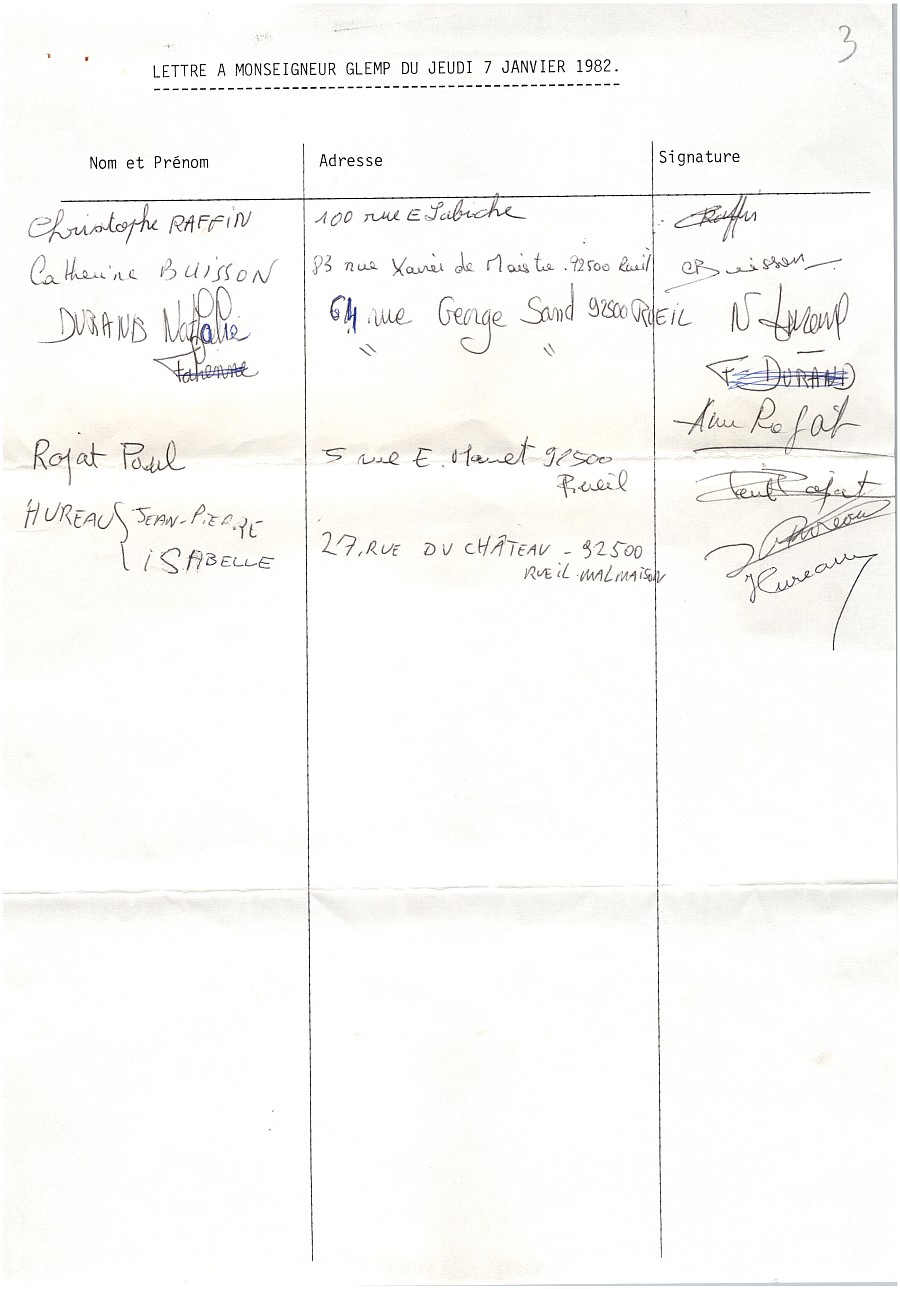 3
LETTRE A MONSEIGNEUR GLEMP DU JEUDI 7 JANVIER 1982.
Nom et Prénom Adresse Signature
Christophe RAFFIN 100 rue E Labiche Raffin
Catherine BUISSON 83 rue Xavier de Maistre. 92500 Rueil CBuisson
DURAND Nathalie 64 rue George Sand 92500 RUEIL N Durand
Fabienne " " F. DURAND
Rojat
Rojat Paul 5 rue E. Manet 92500
Rueil
Paul Rojat
HUREAU JEAN-PIERRE Hureau
ISABELLE 27, RUE DU CHÂTEAU - 92500
RUEIL-MALMAISON
Hureau